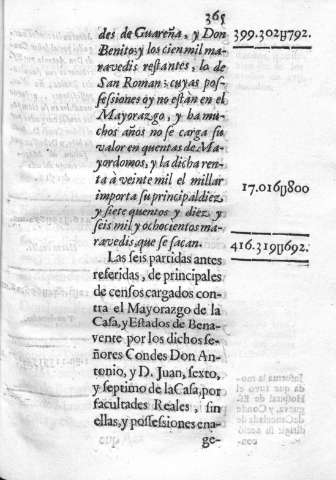 365
des de Guareña, y Don
Benito; y los cien mil ma-
ravedis restantes, lo de
San Roman: cuyas pos-
sessiones oy no estàn en el
Mayorazgo, y ha mu-
chos años no se carga su
valor en quentas de Ma-
yordomos, y la dicha ren-
ta à veinte mil el millar
importa su principal diez
y siete quentos y diez y
seis mil y ochocientos ma-
ravedis, que se sacan.
399.302y792.
17.016y800
416.319y692.
Las seis partidas antes
referidas, de principales
de censos cargados con-
tra el Mayorazgo de la
Casa, y Estados de Bena-
vente por los dichos se-
ñores Condes Don An-
tonio, y D. Juan, sexto,
y septimo de la Casa, por
facultades Reales, sin
ellas, y possessiones ena-
ge-